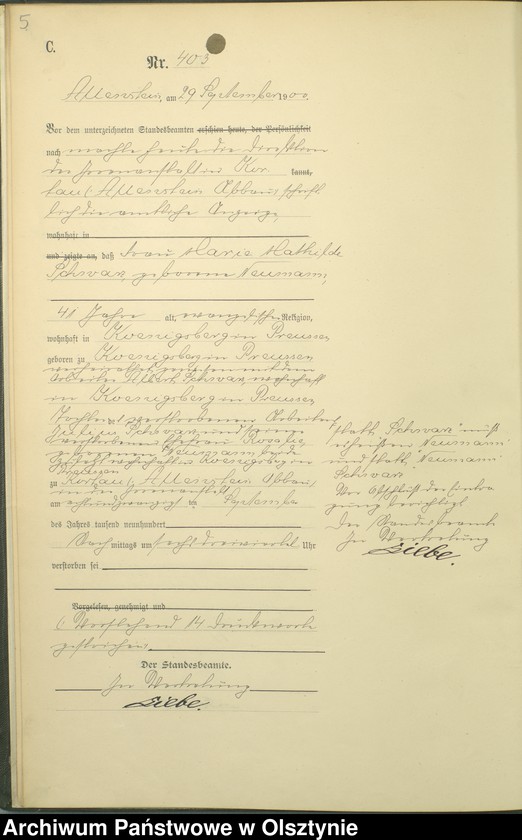 5
C.
Nr. 403
Allenstein, am 29 September 1900.
Vor dem unterzeichneten Standesbeamten erschien heute, der Persönlichkeit
nach machte heute die Direktion
der Irrenanstalt in Kor kannt,
tau (Allenstein Abbau) schrift
lich die amtliche Anzeige,
wohnhaft in
und zeigte an, daß Frau Marie Mathilde
Schwarz, geborene Neumann,
Jahre alt, evangelischer Religion,
wohnhaft in Koenigsberg in Preussen
geboren zu Koenigsberg in Preussen
verheiratet gewesen mit dem
Arbeiter Albert Schwarz wohnhaft
in Koenigsberg in Preussen
Tochter des verstorbenen Arbeiters
Julius Schwarz und seiner
verstorbenen Ehefrau Rosalie,
geborenen Neumann, beide
zuletzt wohnhaft in Koenigsberg in
Preussen
zu Kortau, Allenstein Abbau,
in der Irrenanstalt
am achtundzwanzigsten September
des Jahres tausend neunhundert
Nachmittags um sechs dreiviertel Uhr
verstorben sei
Vorgelesen, genehmigt und
Vorstehend 14 Druckworte
gestrichen.
Der Standesbeamte.
In Vertretung
Liebe.
Statt „Schwarz“ muß
es heißen Neumann
und statt „Neumann“
Schwarz.
Vor Abschluß der Eintra
gung berichtigt
Der Standesbeamte
In Vertretung
Liebe.
Archiwum Państwowe w Olsztynie